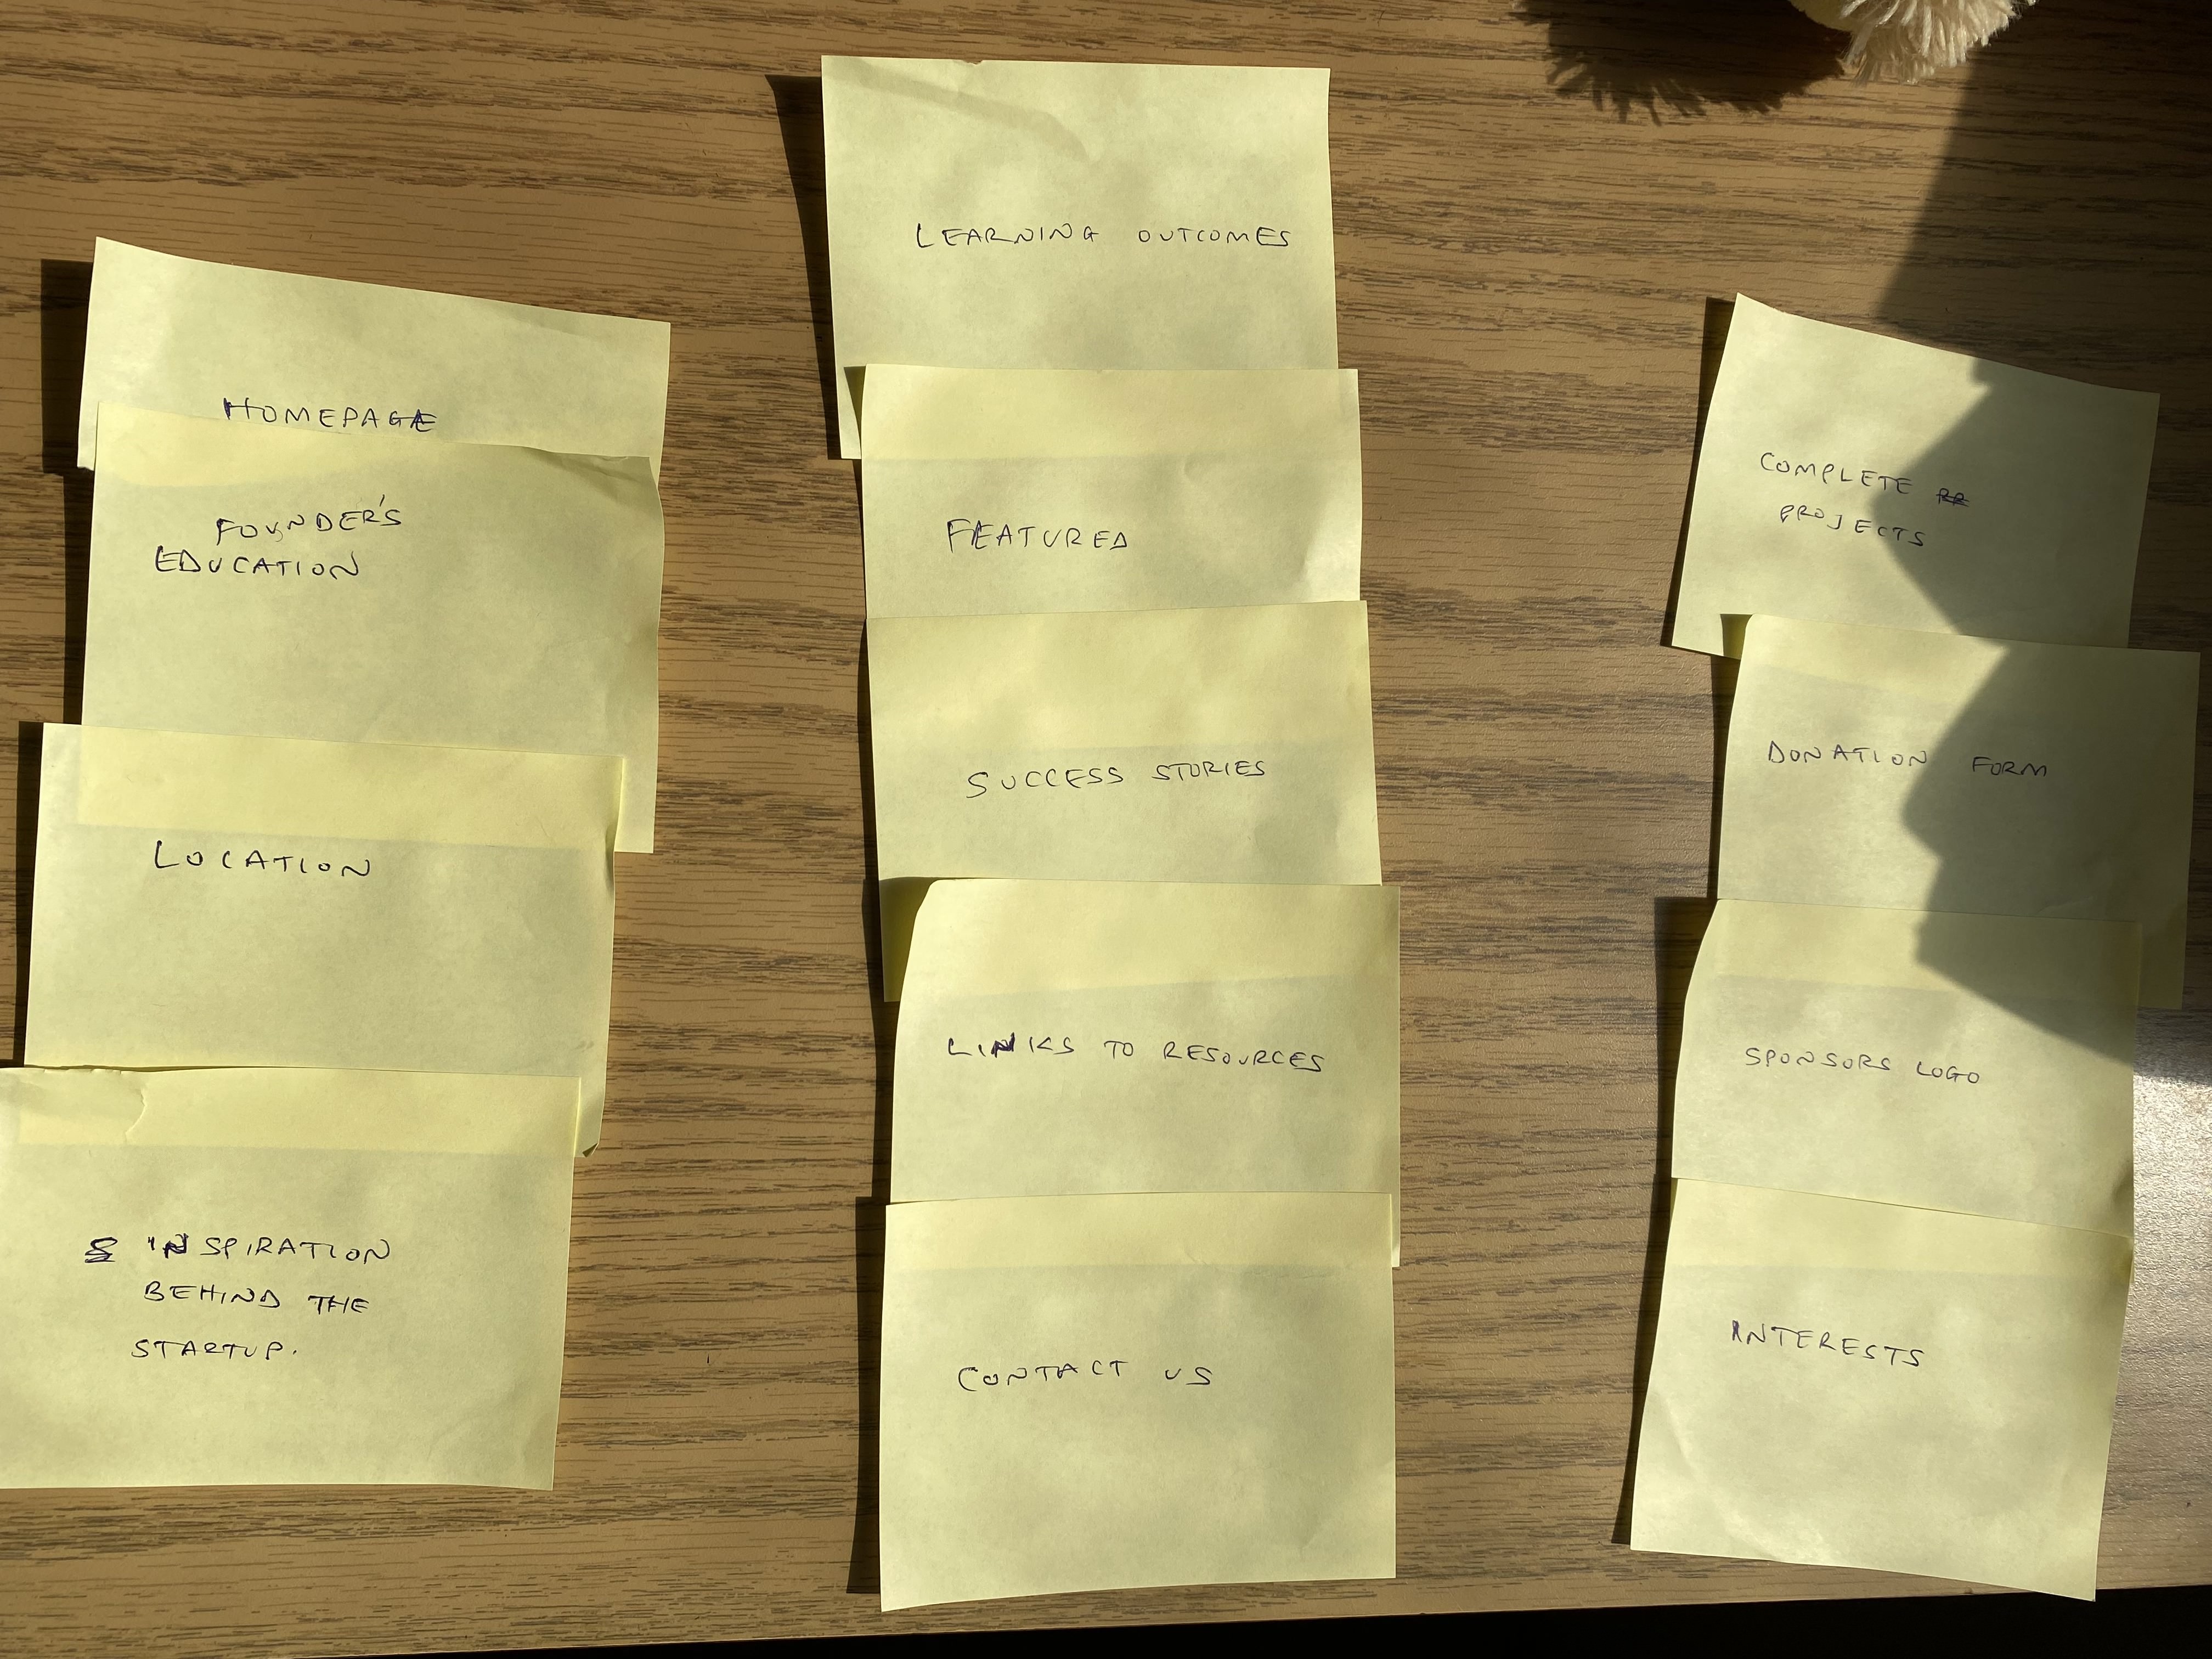 HOMEPAGE
FOUNDER'S
EDUCATION
LOCATION
INSPIRATION
BEHIND THE
STARTUP.
LEARNING OUTCOMES
FEATURED
SUCCESS STORIES
LINKS TO RESOURCES
CONTACT US
COMPLETE
PROJECTS
DONATION FORM
SPONSORS LOGO
INTERESTS